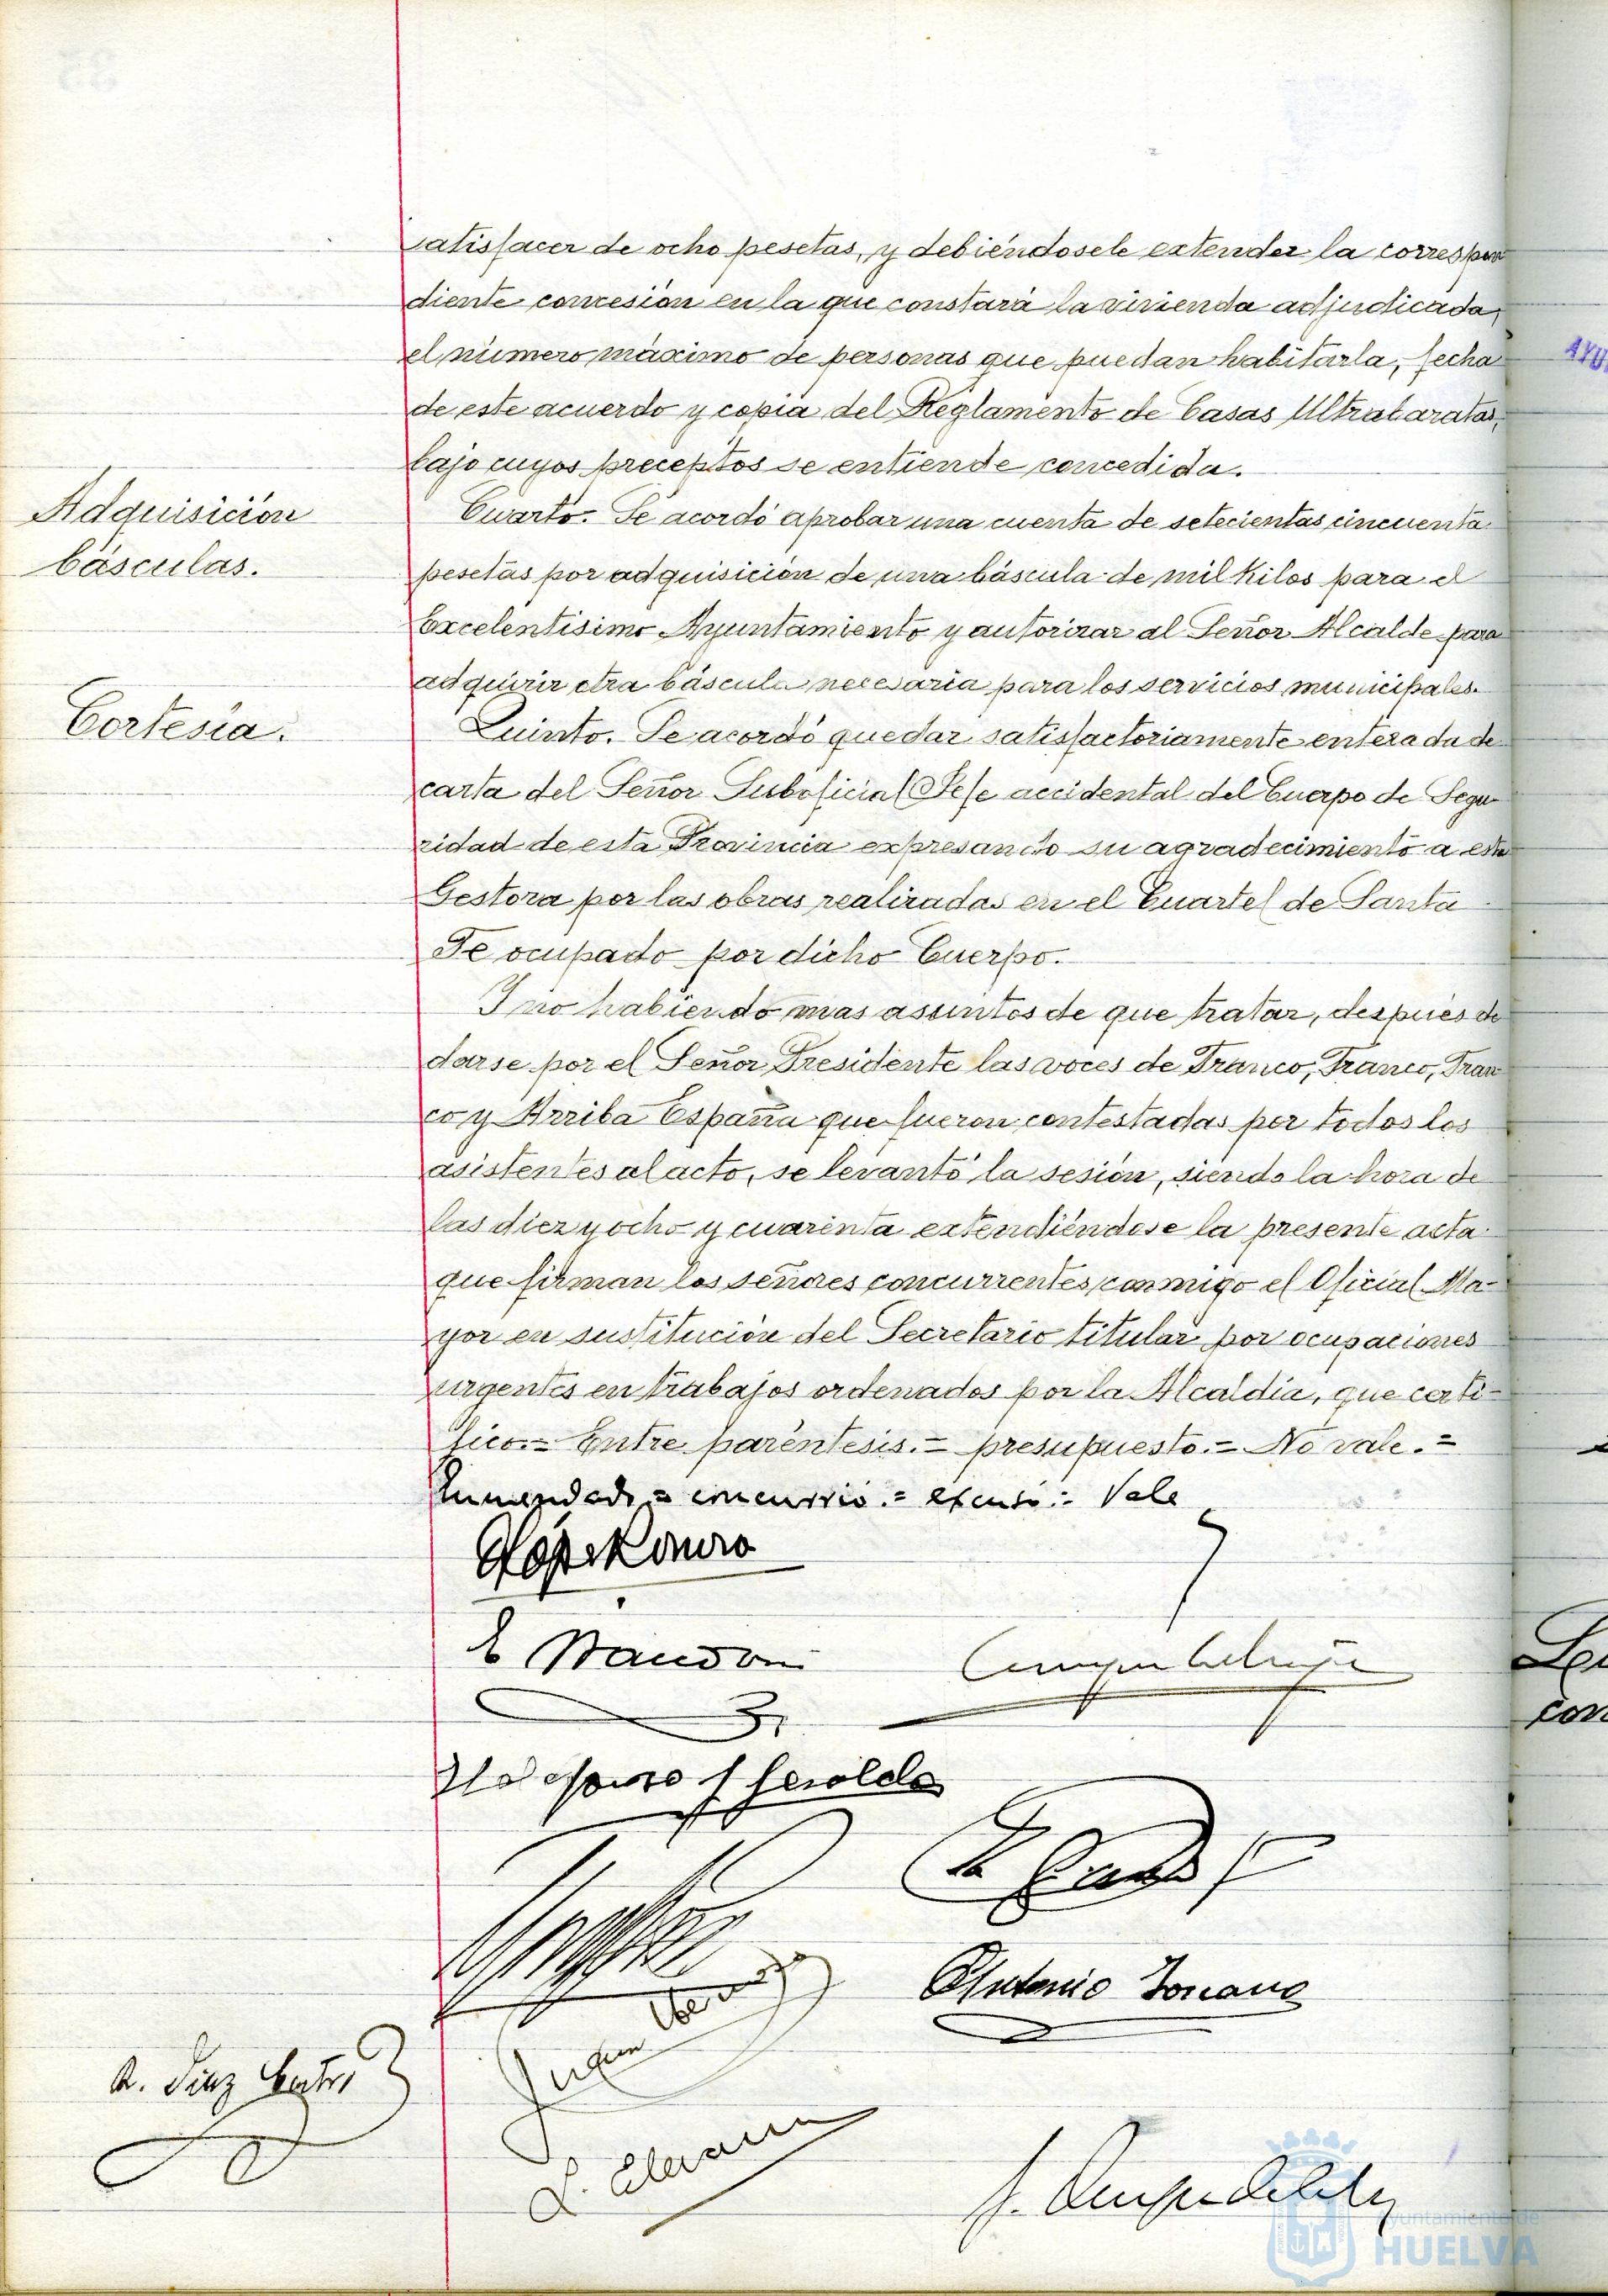 satisfacer de ocho pesetas, y debiéndosele extender la correspon
diente concesión en la que constará la vivienda adjudicada,
el número máximo de personas que puedan habitarla, fecha
de este acuerdo y copia del Reglamento de Casas Ultrabaratas,
bajo cuyos preceptos se entiende concedida.
Adquisición
básculas.
Cuarto. Se acordó aprobar una cuenta de setecientas cincuenta
pesetas por adquisición de una báscula de mil kilos para el
Excelentísimo Ayuntamiento y autorizar al Señor Alcalde para
adquirir otra báscula necesaria para los servicios municipales.
Cortesía.
Quinto. Se acordó quedar satisfactoriamente enterada de
carta del Señor Suboficial Jefe accidental del Cuerpo de Segu-
ridad de esta Provincia expresando su agradecimiento a esta
Gestora por las obras realizadas en el Cuartel de Santa
Fe ocupado por dicho Cuerpo.
Y no habiendo mas asuntos de que tratar, después de
darse por el Señor Presidente las voces de Franco, Franco, Fran
co y Arriba España que fueron contestadas por todos los
asistentes al acto, se levantó la sesión, siendo la hora de
las diez y ocho y cuarenta extendiéndose la presente acta
que firman los señores concurrentes conmigo el Oficial Ma-
yor en sustitución del Secretario titular por ocupaciones
urgentes en trabajos ordenados por la Alcaldía, que certi-
fico.= Entre paréntesis.= presupuesto.= No vale.=
Enmendado = concurrió.= Vale
Antonio
R. Díaz
Ayuntamiento de
HUELVA